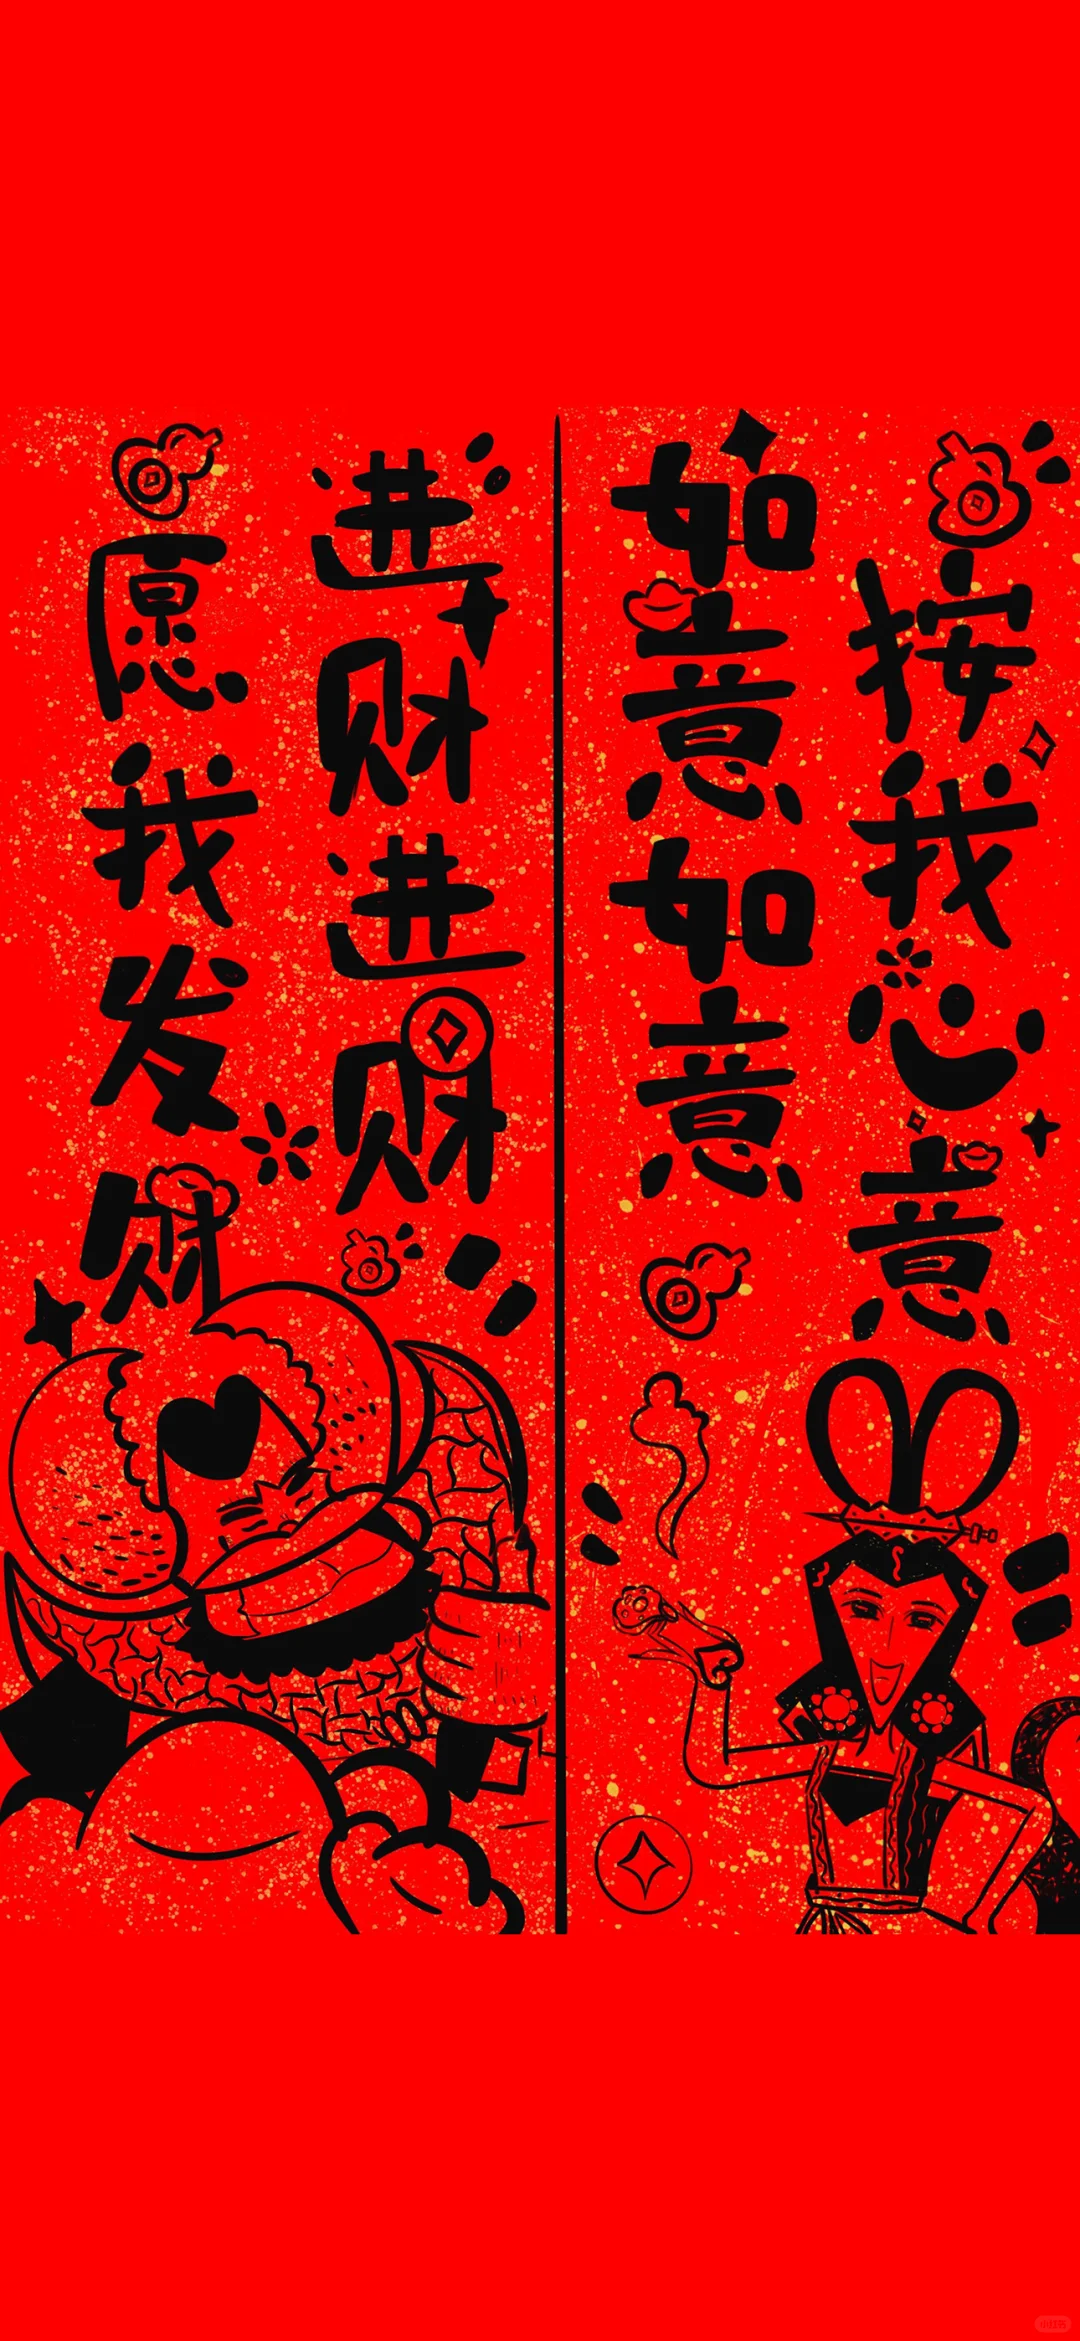 愿我发财
进财进财
如意如意
按我心意